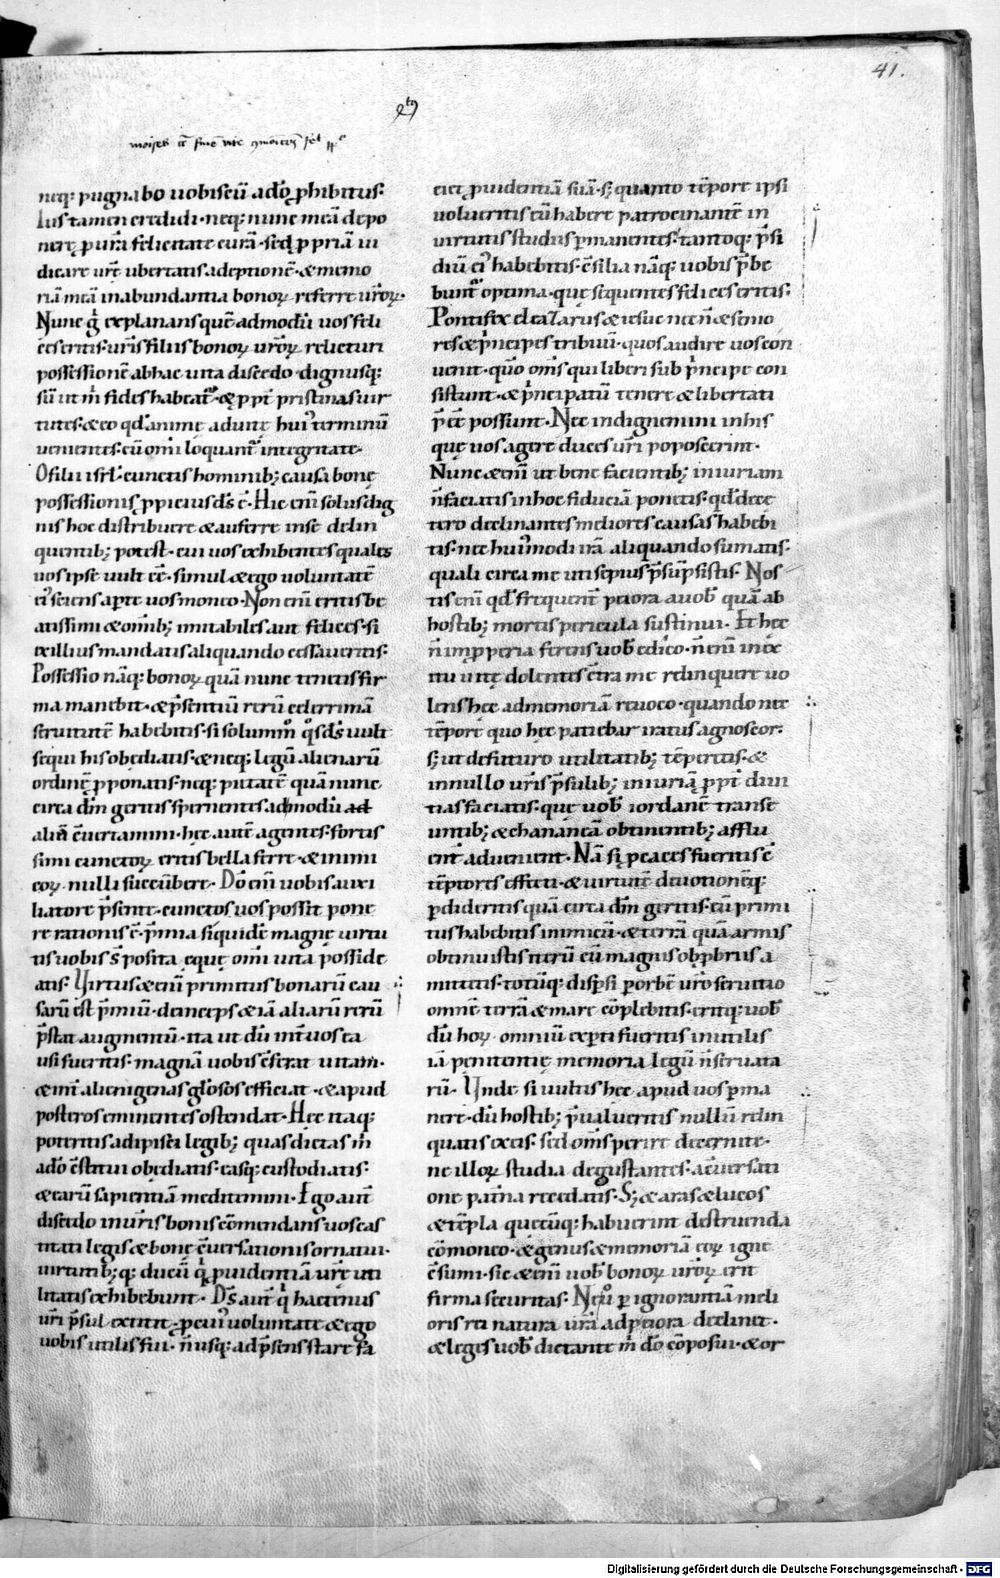 41.
neq; pugnabo uobiscū adō phibitus:
Ius tamen credidi· neq; nunc meā depo
nerę p urā felicitate curā· sed ppriā iu
dicare urē ubertatis adeptionē· & memo
riā meā in abundantia bonoꝝ referre uroꝝ·
Nunc g̊ explanans quēadmodū uos feli
ces eritis· uris filiis bonoꝝ uroꝝ relicturi
possessionē abhac uita discedo· dignusq;
sū ut m̄ fides habeat᷑· & ppt̄ pristinas uir
tutes· & eo qd̄ animę ad unc̨ hui᷒ terminū
uenientes· cū omī loquant᷑ integritate·
O filii isrl̄· cunctis hominib; causa bonę
possessionis ppicius ds̄ ē· Hic enī solus dig
nis hoc distribuere & auferre in sē delin
quentib; potest· cui uos exhibentes quales
uos ipse uult eē· simul & ego uoluntatē
ei᷒ sciens apte uos moneo· Non enī eritis be
atissimi & omīb; imitabiles aut felices· si
ex illius mandatis aliquando cessaueritis:
Possessio nāq; bonoꝝ quā nunc tenetis fir
ma manebit· & p̄sentiū rerū celerrimā
seruitutē habebitis· si solummͦ q̄s ds̄ uult
sequi his obediatis· & neq; legū alienarū
ordinē pponatis· neq; pietatē quā nunc
circa dm̄ geritis spernentes admodū ad
aliā cuertamini· hęc autē agentes· fortis
simi cunctoꝝ eritis bella ferre· & inimi
coꝝ nulli succūbere· Dō enī uobis auxi
liatore p̄sente· cunctos uos possit pone
re rationis ē· p̄mia siquidē magnę uirtu
tis uobis s̄ posita ęque omī uita posside
atis· Virtus & enī primitus bonarū cau
sarū est p̄miū· deinceps & iā aliarū rerū
p̄stat augmentū· ita ut dū int̄ uos ea
usi fueritis· magnā uobis cferat uitam·
& int̄ alienigenas gl̄osos efficiat· & apud
posteros eminentes ostendat· Hęc itaq;
poteritis adipisci legib; quas dictas m̄
adō cstitui obediatis· easq; custodiatis·
& earū sapientiā meditemini· Ego aut̄
discedo in uris bonis cōmendans uos cas
titati legis & bonę cuersationis ornatui·
uirtutib; q; ducū q̇ puidentiā urē uti
litatis exhibebunt· Ds̄ aut̄ q̇ hactenus
ur̄i p̄sul extitit· p cui᷒ uoluntatē & ego
uobis utilis fui· n̄ usq; ad p̄sens stare fa
ciet puidentiā suā· s; quanto tēpore ipsi
uolueritis eū habere patrocinantē in
uirtutis studiis pmanentes· tantoq; p̄si
diū ei᷒ habebitis· csilia nāq; uobis p̄be
bunt᷑ optima· quę sequentes felices eritis·
Pontifex eleazarus & iesue necn̄ & senio
res & p̄ncipes tribuū· quos audire uos con
uenit· qm̄ om̄s qui liberi sub p̄ncipe con
sistunt· & p̄ncipatū tenere & libertati
p̄ eē possunt· Nec indignemini in his
quę uos agere duces ur̄i poposcerint·
Nunc & enī ut bene facientib; iniuriam
n̄ faciatis in hoc fiduciā ponetis· qd̄ dece
tero declinantes meliores causas habebi
tis· nec hui᷒modi irā aliquando sumatis·
quali circa me uti sepius p̄sūpsistis· Nos
tis enī qd̄ frequent̄ peiora a uob̄ quā ab
hostib; mortis pericula sustinui· Et hęc
n̄ impperia ferens uob̄ edico· n̄ enī in ex
itu uitę dolentes ctra me relinquere uo
lens hęc ad memoriā reuoco· quando nec
tēpore quo hęc patiebar iratus agnoscor·
s; ut de futuro utilitatib; tēperetis· &
in nullo uris p̄sulib; iniuriā ppt̄ diui
tias faciatis· quę uob̄ iordanē transe
untib; & chananeā obtinentib; afflu
ent̄ aduenient· Nā si pcaces fueritis c
tēptores effecti· & uirtutē deuotionēq;
pdideritis quā circa dm̄ geritis· eū primi
tus habebitis inimicū· & terrā quā armis
obtinuistis iterū cū magnis obprobriis a
mittetis· totūq; dispsi p orbē uro seruitio
omnē terrā & mare cōplebitis· eritq; uob̄
dū hoꝝ omniū expti fueritis inutilis
iā penitentię memoria legū n̄ seruata
rū· Vnde si uultis hęc apud uos pma
nere· dū hostib; p̄ualueritis nullū relin
quatis ex eis· sed om̄s perire decernite·
ne illoꝝ studia degustantes· a cuersati
one pat̄na recedatis· S; & aras & lucos
& tēpla quęcūq; habuerint destruenda
cōmoneo· & genus & memoriā eoꝝ igne
csumi· sic & enī uob̄ bonoꝝ uroꝝ erit
firma securitas· Neū p ignorantiā meli
oris rei natura urā ad peiora declinet·
& leges uob̄ dictante m̄ dō cōposui· & or
Digitalisierung gefördert durch die Deutsche Forschungsgemeinschaft - DFG